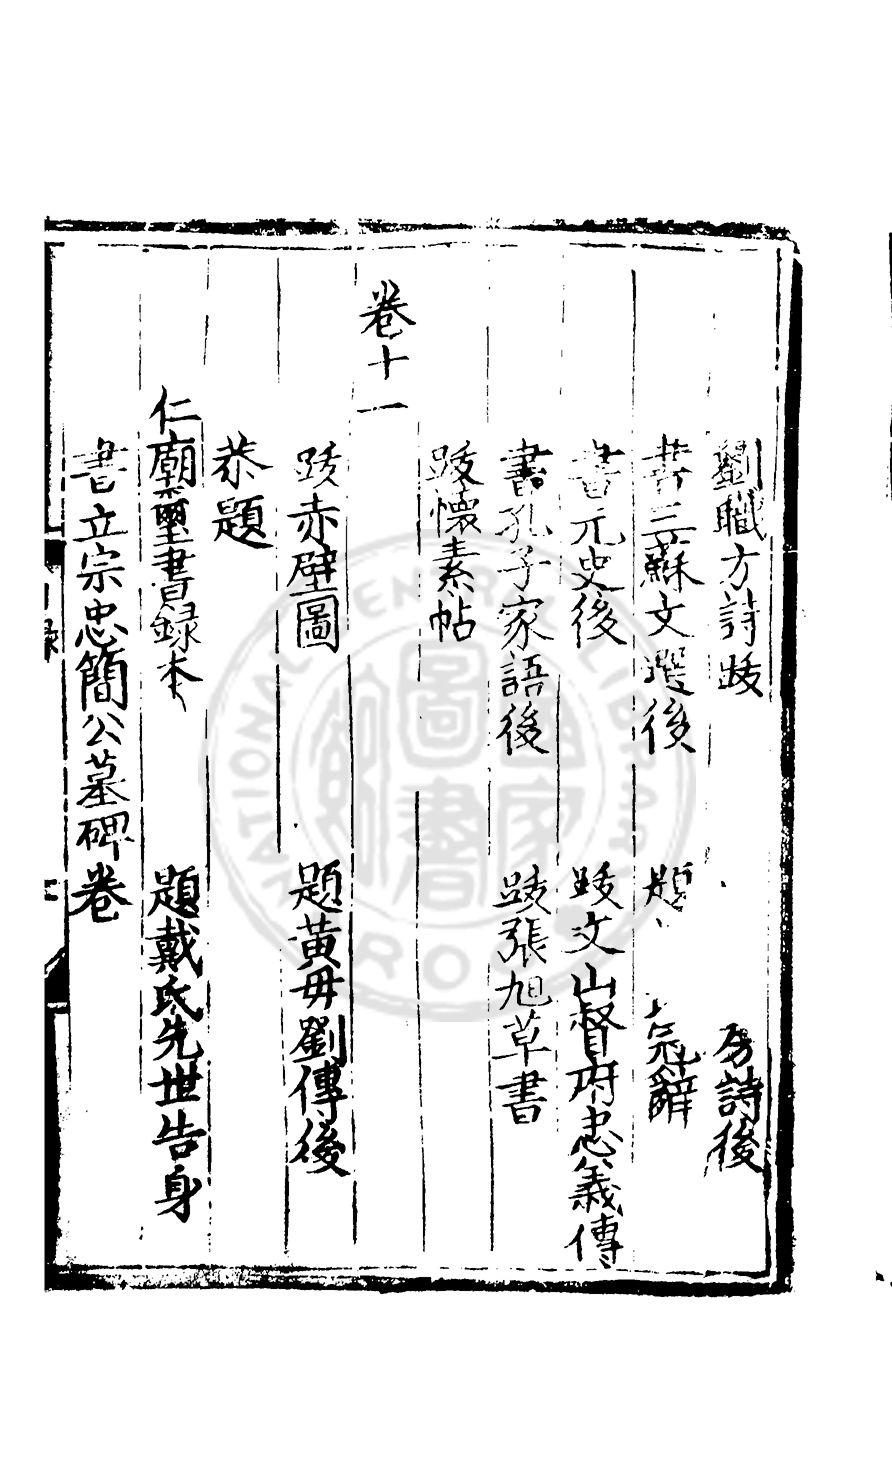 劉職方詩跋　房詩後
書三蘇文選後　題　冠辭
書元史後　跋文山督府忠義傳
書孔子家語後　跋張旭草書
跋懷素帖
卷十一
跋赤壁圖　題黃毋劉傳後
恭題
仁廟璽書録本　題戴氏先世告身
書立宗忠簡公墓碑卷